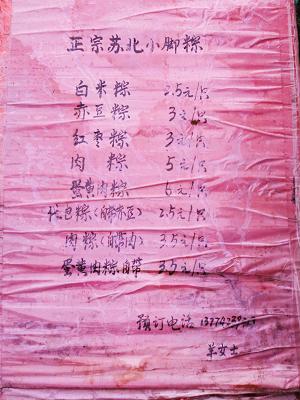 正宗苏北小脚粽
白米粽 2.5元/只
赤豆粽 3元/只
红枣粽 3元/只
肉粽 5元/只
蛋黄肉粽 6元/只
粽(自带赤豆) 2.5元/只
肉粽(自带肉) 3.5元/只
蛋黄肉粽自带 3.5元/只
预订电话
羊女士